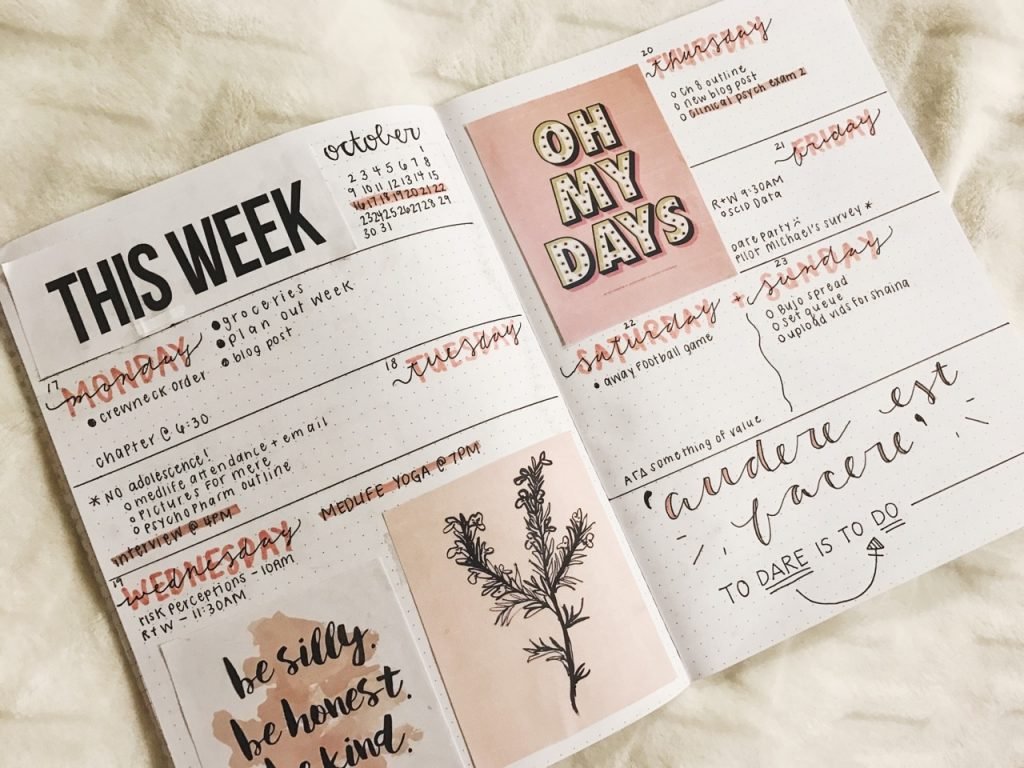 THIS WEEK
october
1
2 3 4 5 6 7 8
9 10 11 12 13 14 15
16 17 18 19 20 21 22
23 24 25 26 27 28 29
30 31
17
MONDAY
monday
groceries
plan out week
blog post
crewneck order
chapter @ 6:30
18
TUESDAY
tuesday
* NO adolescence!
medlife attendance + email
Pictures for mere
Psychopharm outline
interview @ 4PM
MEDLIFE YOGA @ 7PM
19
WEDNESDAY
wednesday
risk Perceptions - 10AM
R+W - 11:30AM
be silly.
be honest.
be kind.
OH
MY
DAYS
20
THURSDAY
thursday
Ch 8 outline
new blog post
Clinical psych exam 2
21
FRIDAY
friday
R+W 9:30AM
SCID Data
Dare party
Pilot Michael's survey *
22
SATURDAY
saturday
+
23
SUNDAY
sunday
away football game
Bujo spread
set queue
upload vids for shaina
AΓΔ something of value
'audere est
facere'
TO DARE IS TO DO